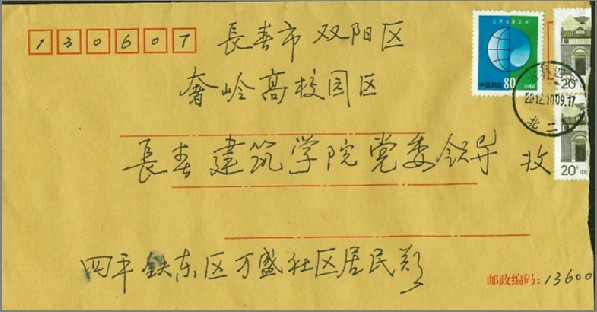 130607
長春市双阳区
奢岭高校园区
長春建筑学院党委领导 收
四平铁东区万盛社区居民郑
邮政编码：13600
中国邮政 80
20
2012.10.09.17
北二
20